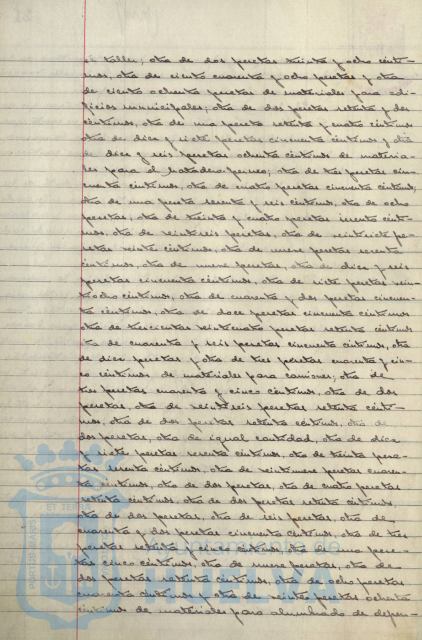 taller; otra de dos pesetas treinta y ocho cénti-
mos, otra de ciento cuarenta y ocho pesetas y otra
de ciento ochenta pesetas de materiales para edi-
ficios municipales; otra de dos pesetas setenta y dos
céntimos, otra de una peseta setenta y cuatro céntimos
otra de diez y siete pesetas cincuenta céntimos y otra
de diez y seis pesetas ochenta céntimos de materia-
les para el matadero; otra de tres pesetas cin-
cuenta céntimos, otra de cuatro pesetas cincuenta céntimos,
otra de una peseta sesenta y seis céntimos, otra de ocho
pesetas, otra de treinta y cuatro pesetas cénti-
mos, otra de veintiseis pesetas, otra de veintisiete pe-
setas veinte céntimos, otra de nueve pesetas sesenta
céntimos, otra de nueve pesetas, otra de diez y seis
pesetas cincuenta céntimos, otra de siete pesetas vein-
tiocho céntimos, otra de cuarenta y dos pesetas cincuen-
ta céntimos, otra de doce pesetas cincuenta céntimos
otra de trescientas veinticuatro pesetas setenta céntimos
otra de cuarenta y seis pesetas cincuenta céntimos, otra
de diez pesetas y otra de tres pesetas cuarenta y cin-
co céntimos de materiales para camiones; otra de
tres pesetas cuarenta y cinco céntimos, otra de dos
pesetas, otra de veintiseis pesetas setenta cénti-
mos, otra de dos pesetas setenta céntimos, otra de
dos pesetas, otra de igual cantidad, otra de diez
y siete pesetas sesenta céntimos, otra de treinta pese-
tas sesenta céntimos, otra de veintinueve pesetas cuaren-
ta céntimos, otra de dos pesetas, otra de cuatro pesetas
setenta céntimos, otra de dos pesetas setenta céntimos
otra de dos pesetas, otra de seis pesetas, otra de
cuarenta y dos pesetas cincuenta céntimos, otra de tres
pesetas setenta y cinco céntimos, otra de una pese-
tas cinco céntimos, otra de nueve pesetas, otra de
dos pesetas setenta céntimos, otra de ocho pesetas
cuarenta céntimos y otra de veinte pesetas ochenta
céntimos de materiales para alumbrado de depen-